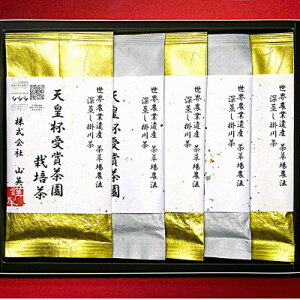 世界農業遺産 茶草場農法
深蒸し掛川茶
世界農業遺産 茶草場農法
深蒸し掛川茶
世界農業遺産 茶草場農法
深蒸し掛川茶
世界農業遺産 茶草場農法
深蒸し掛川茶
天皇杯受賞茶園
天皇杯受賞茶園
栽培茶
株式会社 山英